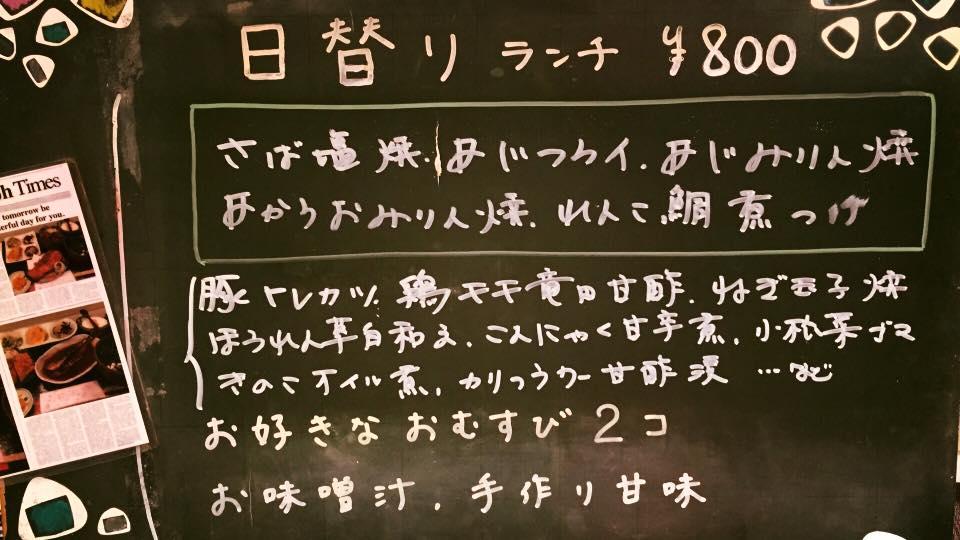 日替り ランチ ¥800
さば塩焼. あじつケイ. あじみりん焼
あからおみりん焼. れんこ鯛煮つけ
豚ヒレカツ. 鶏モモ竜田甘酢. ねぎ玉子焼
ほうれん草白和え. こんにゃく甘辛煮. 小松菜ゴマ
きのこオイル煮. カリフラワー甘酢漬 …など
お好きな おむすび 2コ
お味噌汁. 手作り甘味
h Times
tomorrow be
erful day for you.